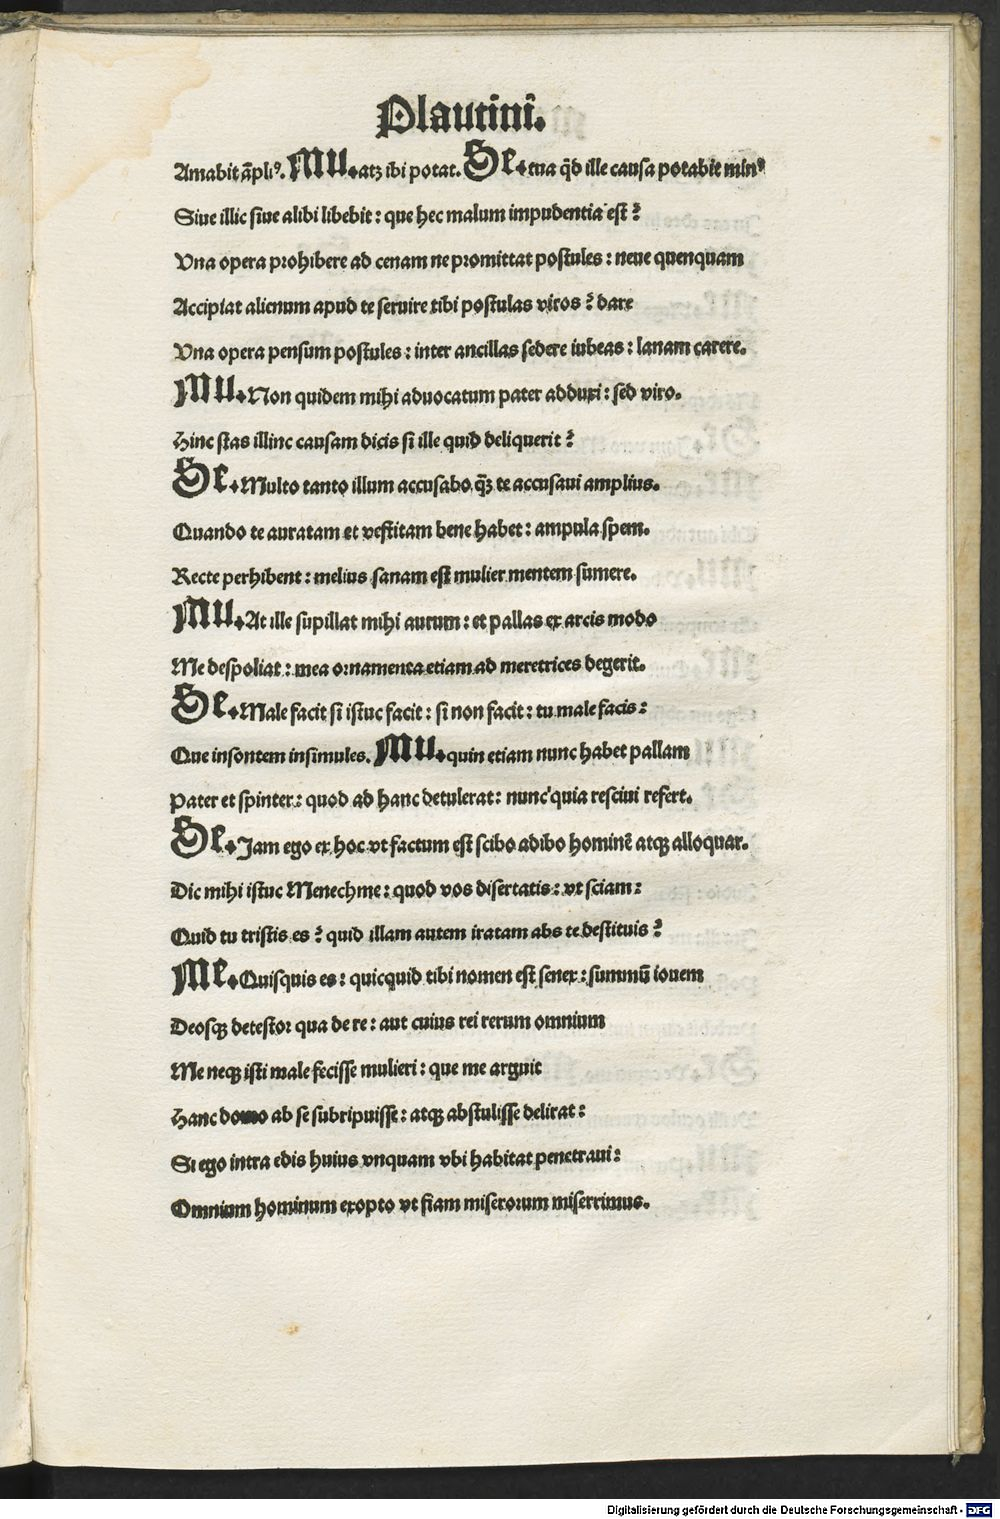 Plautini.
Amabit ãpliꝰ. Mu. atꝫ ibi potat. Se. tua q̃d ille causa potabit minꝰ
Siue illic siue alibi libebit : que hec malum impudentia est ?
Vna opera prohibere ad cenam ne promittat postules : neue quenquam
Accipiat alienum apud te seruire tibi postulas viros ? dare
Vna opera pensum postules : inter ancillas sedere iubeas : lanam carere.
Mu. Non quidem mihi aduocatum pater adduxi : sed viro.
Hinc stas illinc causam dicis si ille quid deliquerit ?
Se. Multo tanto illum accusabo q̃ꝫ te accusaui amplius.
Quando te auratam et vestitam bene habet : ampula spem.
Recte perhibent : melius sanam est mulier mentem sumere.
Mu. At ille supillat mihi aurum : et pallas ex arcis modo
Me despoliat : mea ornamenta etiam ad meretrices degerit.
Se. Male facit si istuc facit : si non facit : tu male facis :
Que insontem insimules. Mu. quin etiam nunc habet pallam
Pater et spinter : quod ad hanc detulerat : nunc quia resciui refert.
Se. Jam ego ex hoc vt factum est scibo adibo hominē atqꝫ alloquar.
Dic mihi istuc Menechme : quod vos disertatis : vt sciam :
Quid tu tristis es ? quid illam autem iratam abs te destituis ?
Me. Quisquis es : quicquid tibi nomen est senex : summū iouem
Deosqꝫ detestor qua de re : aut cuius rei rerum omnium
Me neqꝫ isti male fecisse mulieri : que me arguit
Hanc domo ab se subripuisse : atqꝫ abstulisse delirat :
Si ego intra edis huius vnquam vbi habitat penetraui :
Omnium hominum exopto vt fiam miserorum miserrimus.
Digitalisierung gefördert durch die Deutsche Forschungsgemeinschaft - DFG